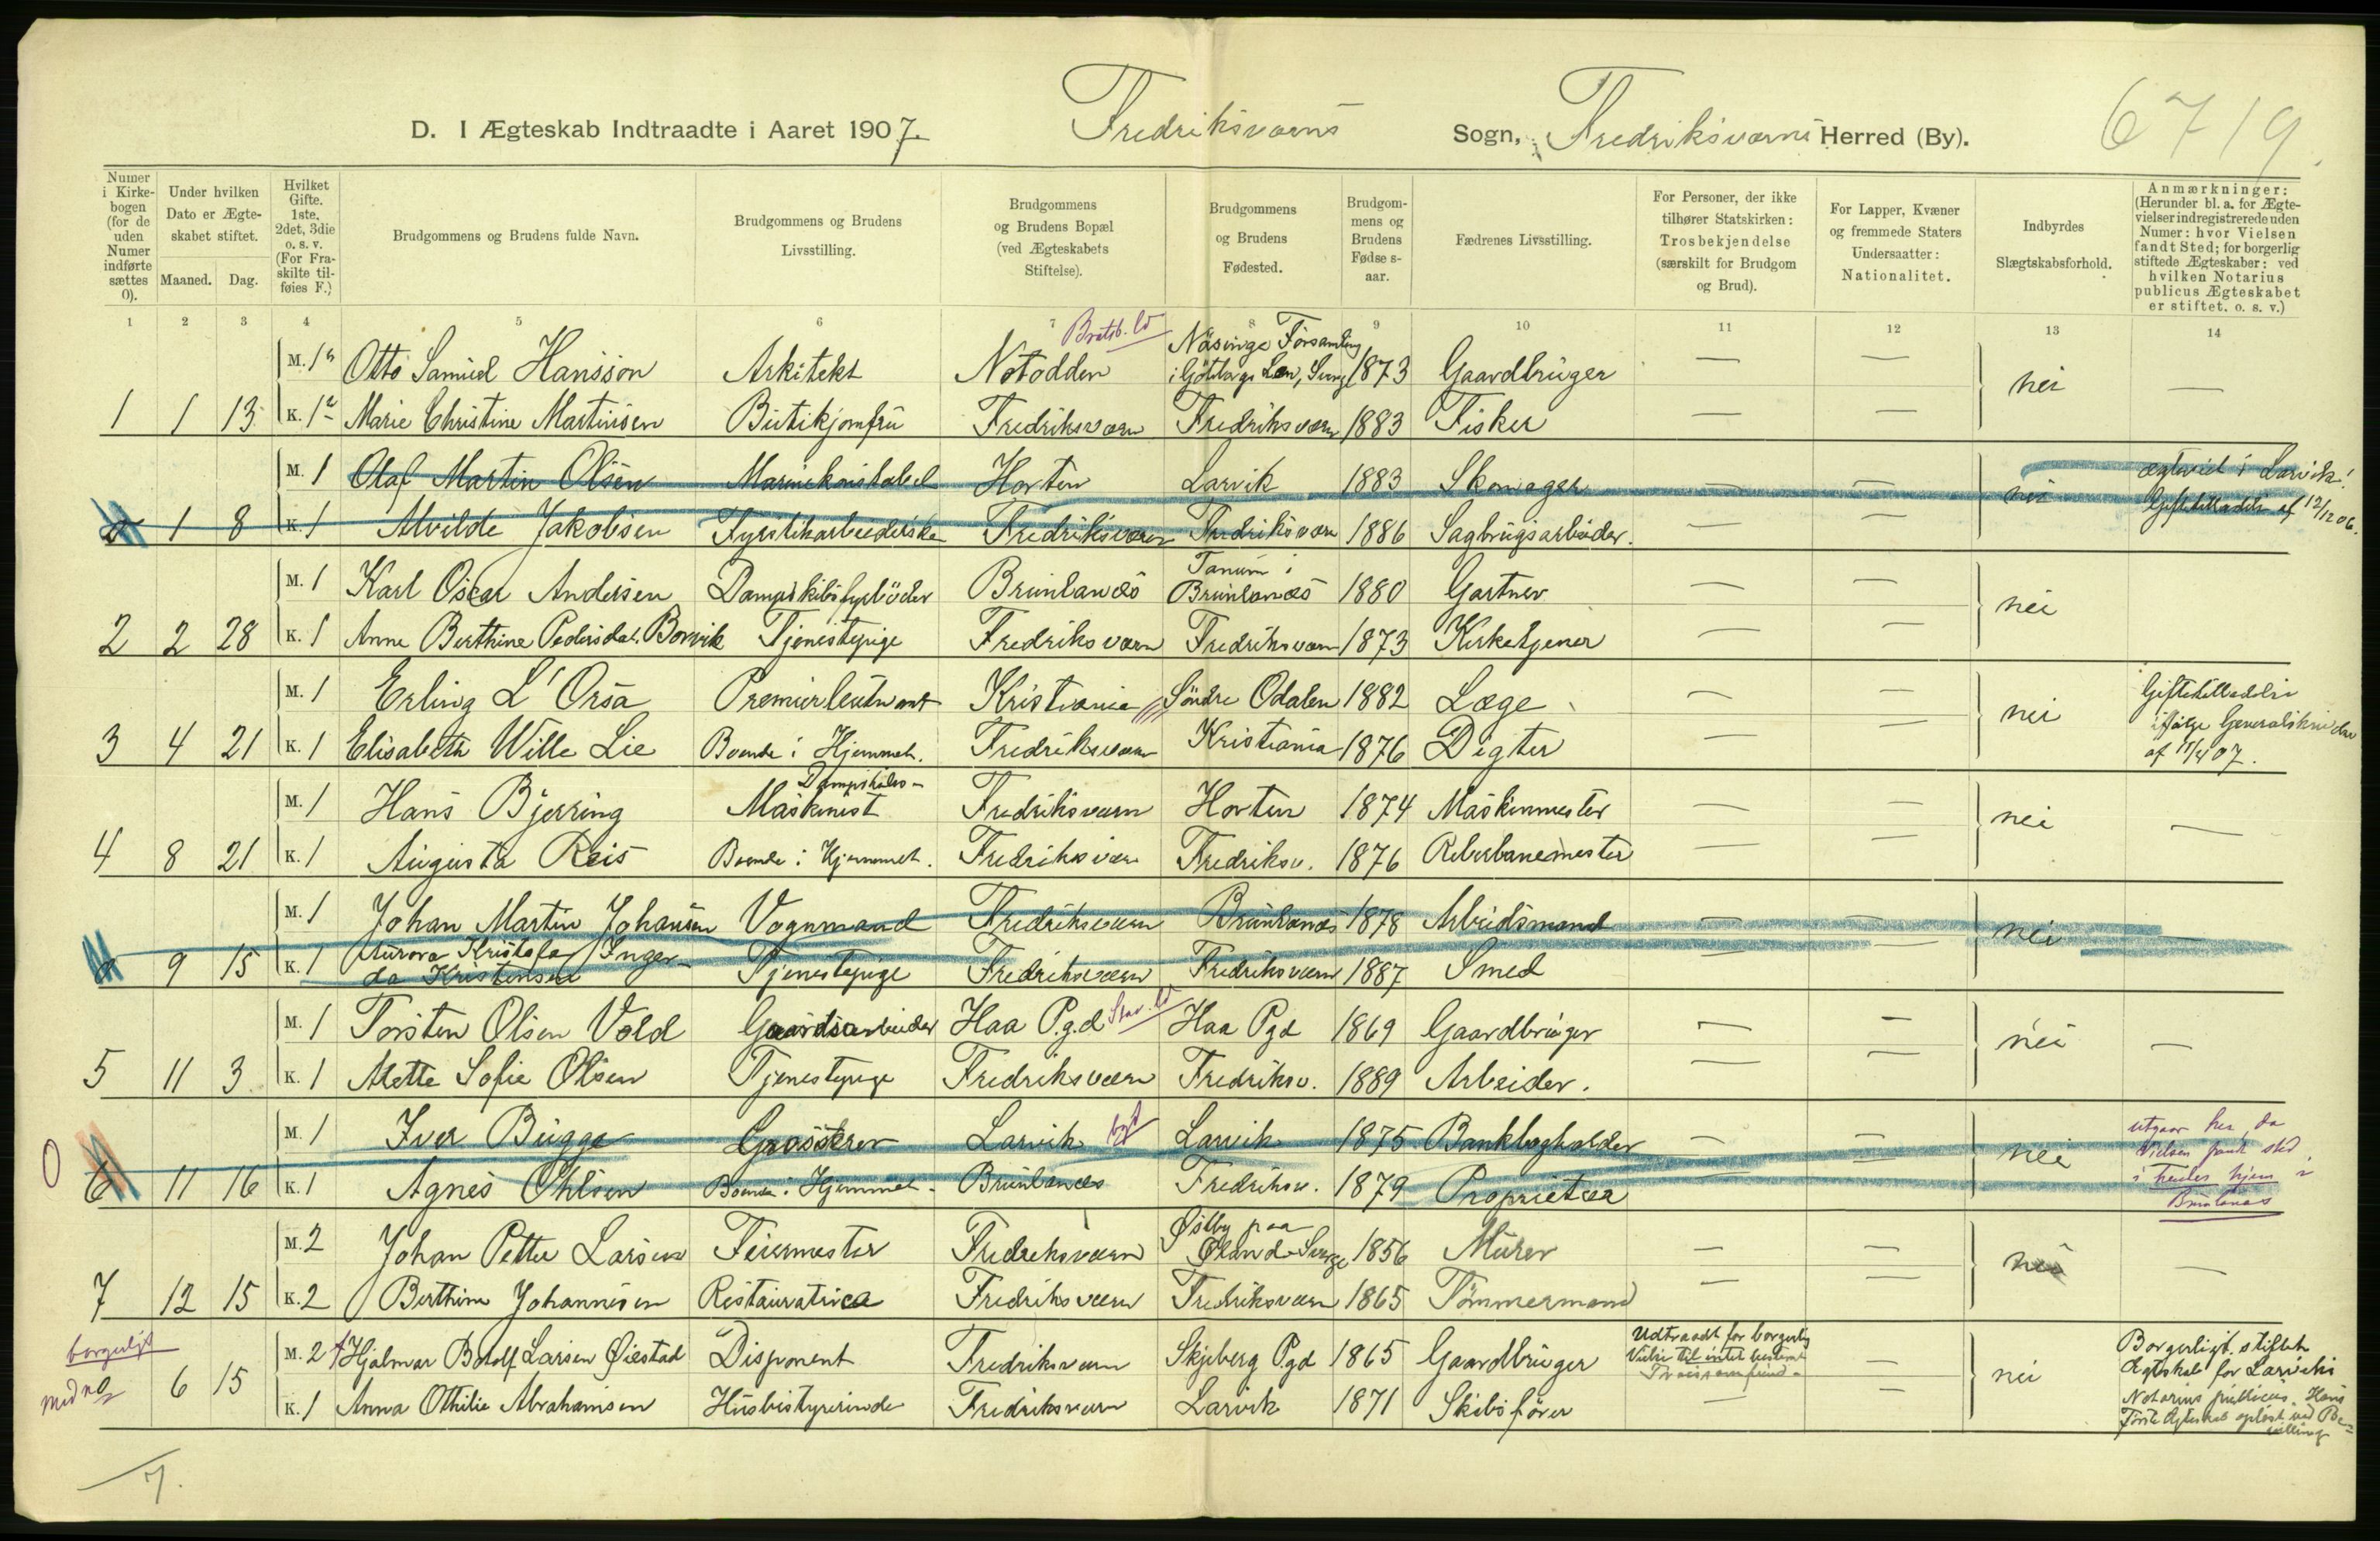 D. I Ægteskab Indtraadte i Aaret 1907. Fredriksværns Sogn, Fredriksværns Herred (By). 6719.
Numer i Kirke-bogen (for de uden Numer indførte sættes 0).
Under hvilken Dato er Ægte-skabet stiftet.
Maaned. Dag.
Hvilket Gifte. 1ste, 2det, 3die o. s. v. (For Fra-skilte til-føies F.)
Brudgommens og Brudens fulde Navn.
Brudgommens og Brudens Livsstilling.
Brudgommens og Brudens Bopæl (ved Ægteskabets Stiftelse).
Brudgommens og Brudens Fødested.
Brudgom-mens og Brudens Fødse s-aar.
Fædrenes Livsstilling.
For Personer, der ikke tilhører Statskirken: Trosbekjendelse (særskilt for Brudgom og Brud).
For Lapper, Kvæner og fremmede Staters Undersaatter: Nationalitet.
Indbyrdes Slægtskabsforhold.
Anmærkninger: (Herunder bl. a. for Ægte-vielser indregistrerede uden Numer: hvor Vielsen fandt Sted; for borgerlig stiftede Ægteskaber: ved hvilken Notarius publicus Ægteskabet er stiftet. o. s. v.)
1 2 3 4 5 6 7 8 9 10 11 12 13 14
Bratsb.
M. 1 Otto Samuel Hansson Arkitekt Notodden Näsinge Församling i Göteborgs Län, Sverige 1873 Gaardbruger — — nei —
1 1 13 K. 1 Marie Christine Martinsen Butikjomfru Fredriksværn Fredriksværn 1883 Fisker — —
M. 1 Olaf Martin Olsen Marinekonstabel Horten Larvik 1883 Skomager — — nei ægteviet i Larvik!
0 1 8 K. 1 Alvilde Jakobsen Fyrstikarbeiderske Fredriksværn Fredriksværn 1886 Sagbrugsarbeider. — — Giftetilladelse af 12/12 06.
M. 1 Karl Oscar Andersen Dampskibsfyrböder Brunlanæs Tanum i Brunlanæs 1880 Gartner — — nei
2 2 28 K. 1 Anne Berthine Pedersdat. Borvik Tjenestepige Fredriksværn Fredriksværn 1873 Kirketjener — —
M. 1 Erling L'Orsa Premierleutnant Kristiania Söndre Odalen 1882 Læge — — nei Giftetilladelse
3 4 21 K. 1 Elisabeth Wille Lie Boende i Hjemmet. Fredriksværn Kristiania 1876 Digter — — ifölge Generalskriveder af 07.
M. 1 Hans Bjerring Dampskibs-Maskinist Fredriksværn Horten 1874 Maskinmester — — nei —
4 8 21 K. 1 Augusta Reis Boende i Hjemmet. Fredriksværn Fredriksv. 1876 Reberbanemester — —
M. 1 Johan Martin Johansen Vognmand Fredriksværn Brunlanæs 1878 Arbeidsmand — — nei —
0 9 15 K. 1 Aurora Kristofa Inger- da Kristensen Tjenestepige Fredriksværn Fredriksværn 1887 Smed — —
M. 1 Torsten Olsen Vold Gaardsarbeider Haa P.gd Stav. Haa Pgd 1869 Gaardbruger — — nei —
5 11 3. K. 1 Alette Sofie Olsen Tjenestepige Fredriksværn Fredriksv. 1889 Arbeider. — —
M. 1 Iver Bugge Grosserer Larvik Larvik 1875 Bankbogholder — — nei utgaar her, da
0 6 11 16 K. 1 Agnes Ohlsen Boende i Hjemmet. Brunlanæs Fredriksv. 1879 Proprietær — — Vielsen fandt sted i hendes hjem i Brunlanæs
M. 2 Johan Petter Larsen Feiermester Fredriksværn Östby paa Øland Sverige 1856 Murer — — nei —
7 12 15 K. 2 Berthine Johannesen Restauratrice Fredriksværn Fredriksværn 1865 Tömmermand — —
borgerligt M. 2 Hjalmar Botolf Larsen Øiestad Disponent Fredriksværn Skjeberg P.gd 1865 Gaardbruger Udtraadt for borgerlig Vielse til intet bestemt Trossamfund — nei Borgerligt stiftet Ægteskab for Larviks
med no 6 15 K. 1 Anna Othilie Abrahamsen Husbestyrerinde Fredriksværn Larvik 1871 Skibsförer — — Notarius publicus. Hans förste Ægteskab oplöst ved Be-villing
7.